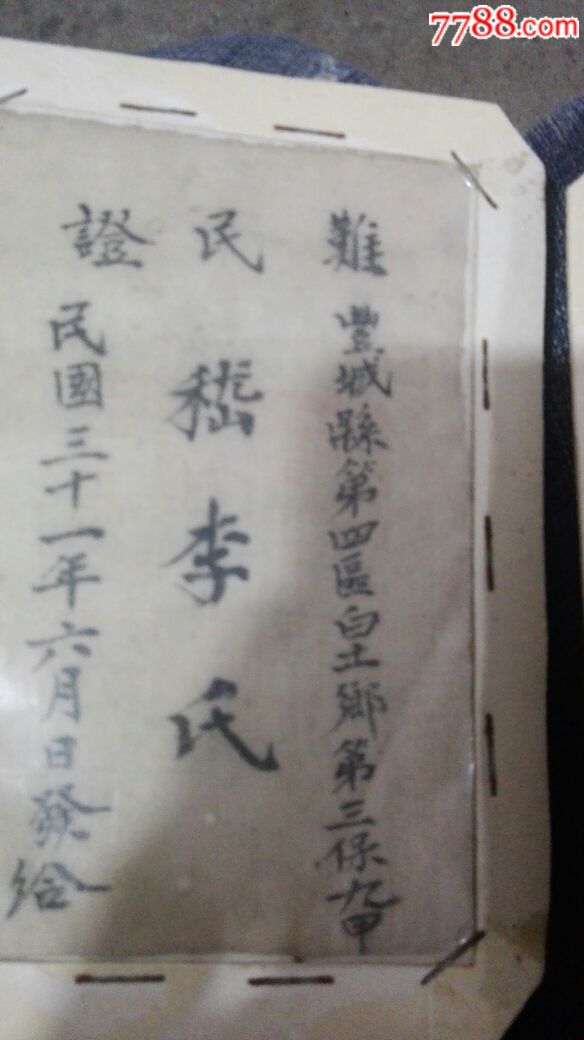 7788.com
難民證
豐城縣第四區白土鄉第三保九甲
嵇李氏
民國三十一年六月日發給